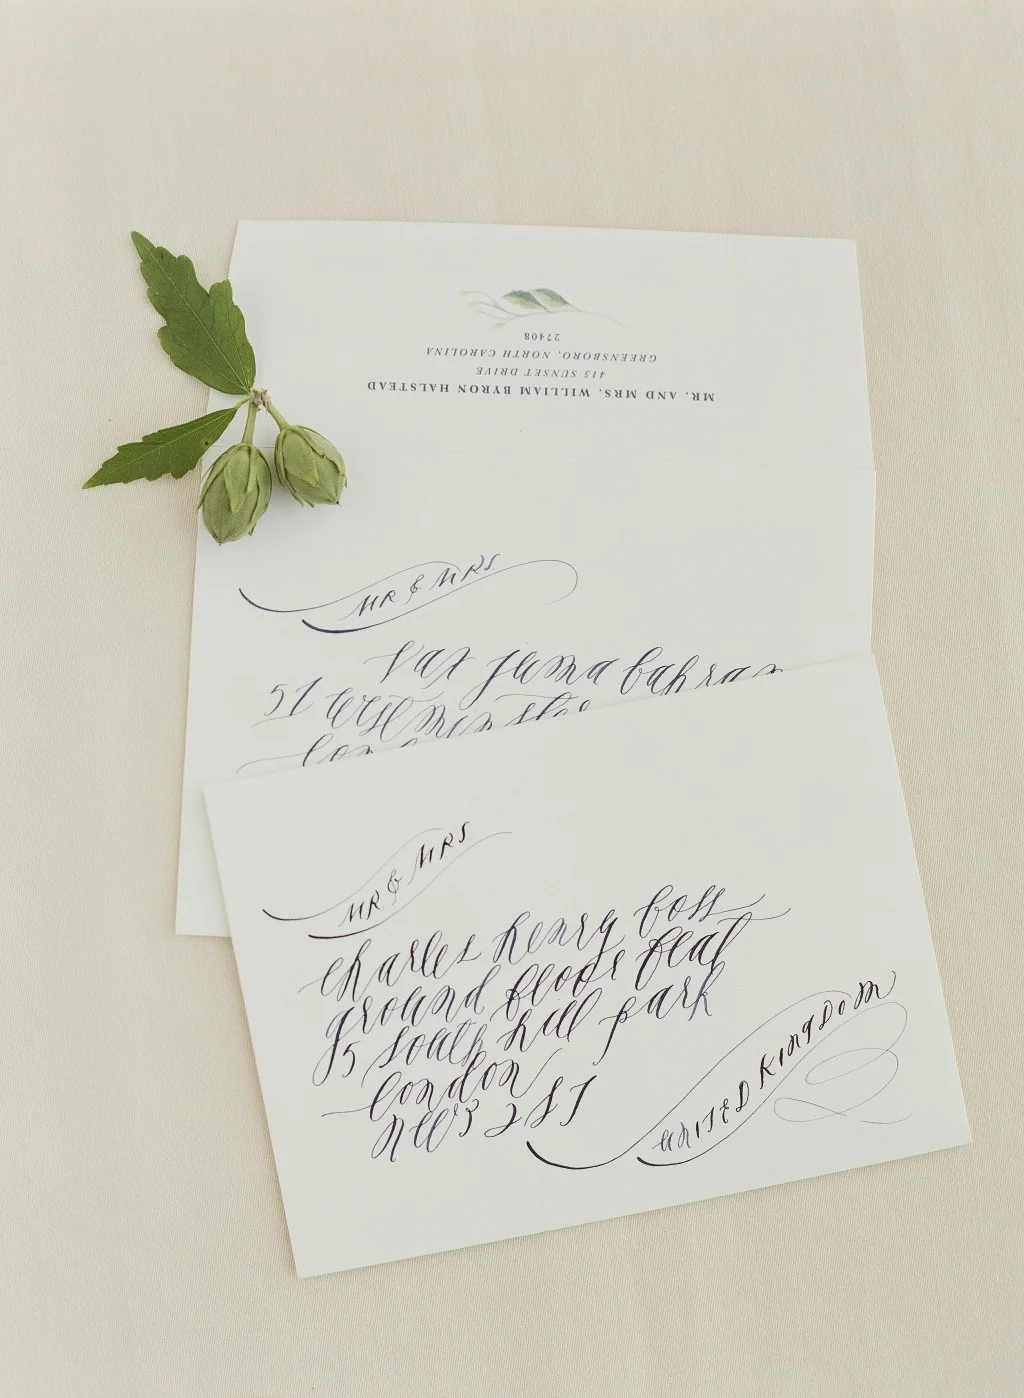 MR. AND MRS. WILLIAM BYRON HALSTEAD
415 SUNSET DRIVE
GREENSBORO, NORTH CAROLINA
27408
MR & MRS
bahram
51
MR & MRS
charles henry boss
ground floor flat
15 south hill park
london
nw3 2ST
UNITED KINGDOM